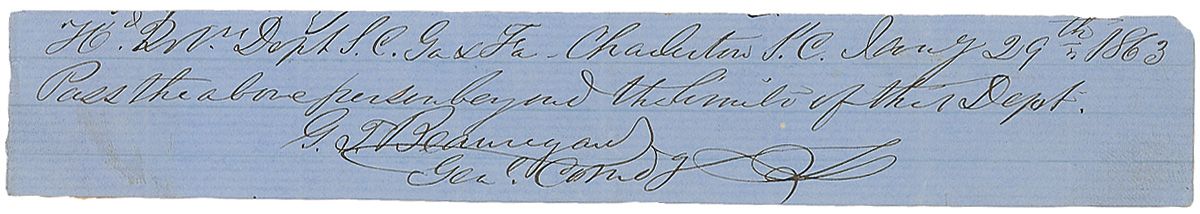 Hd. Qrs. Dept S.C. Ga & Fa - Charleston S.C. Jany 29th 1863
Pass the above person beyond the limits of this Dept.
G. T. Beauregard
Genl. Comdg